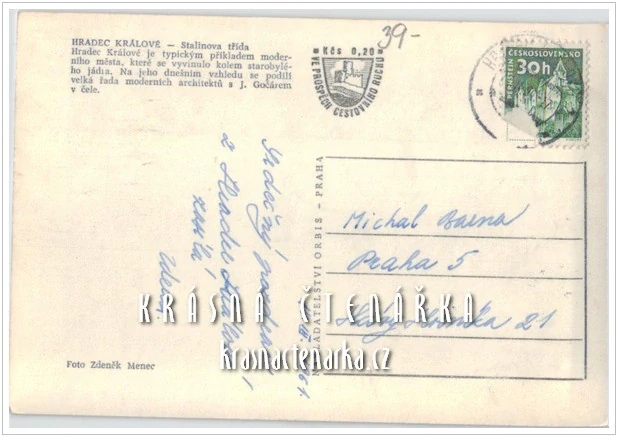 HRADEC KRÁLOVÉ — Stalinova třída
Hradec Králové je typickým příkladem moder-
ního města, které se vyvinulo kolem starobylé-
ho jádra. Na jeho dnešním vzhledu se podílí
velká řada moderních architektů s J. Gočárem
v čele.
39-
Kčs 0,20
VE PROSPĚCH CESTOVNÍHO RUCHU
ČESKOSLOVENSKO
30h
PERNŠTEJN
Srdečný pozdrav
z Hradce Králové
zasílá
NAKLADATELSTVÍ ORBIS - PRAHA
Michal Barna
Praha 5
21
KRÁSNÁ ČTENÁŘKA
krasnactenarka.cz
Foto Zdeněk Menec